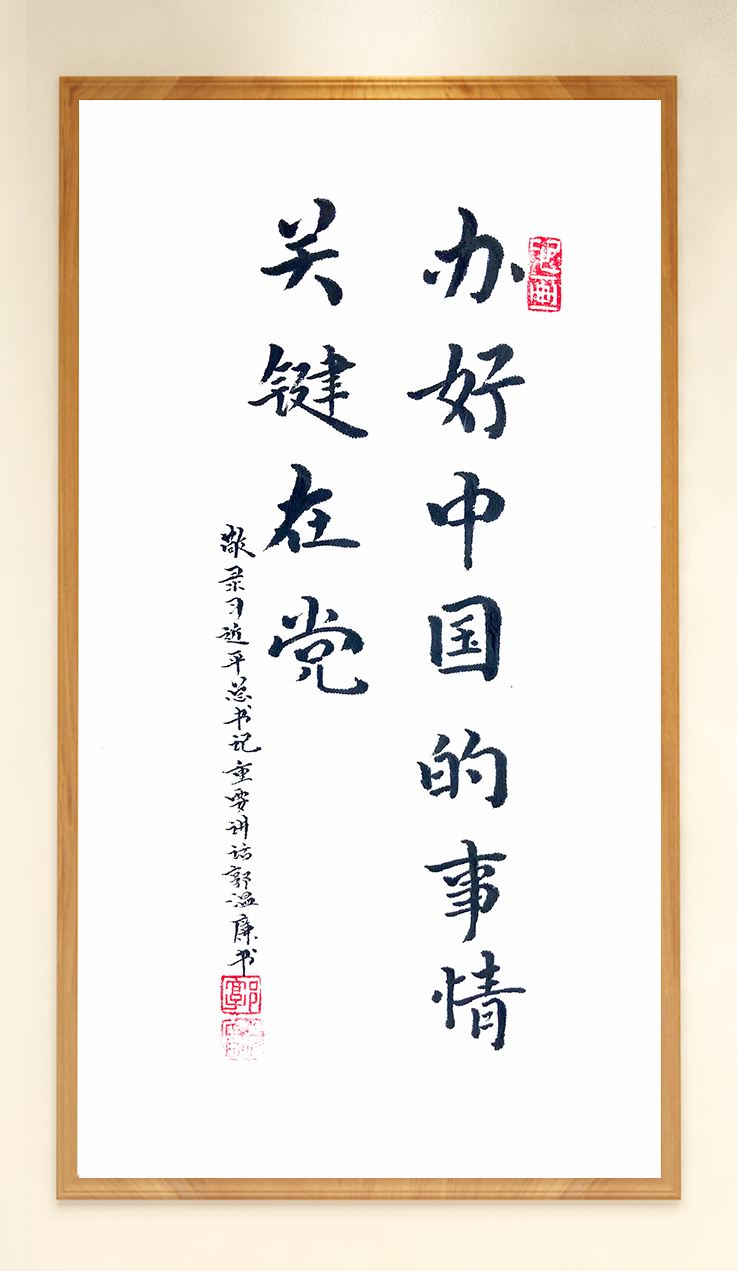 办好中国的事情
关键在党
敬录习近平总书记重要讲话郭温廉书